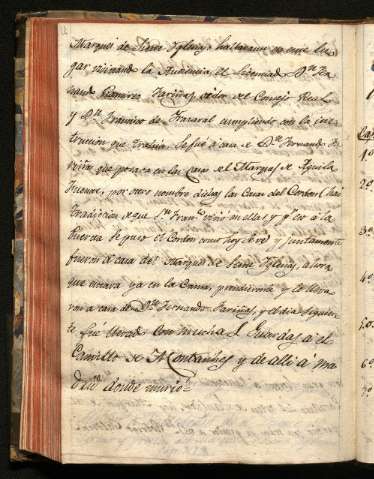 Marques de Siete Yglesias hallaronse en este lu-
gar visitando la Audiencia el Licenciado Dn. Fer-
nando Ramirez Fariñas oidor del Consejo Real
y Dn. Francisco de Yrazaval cumpliendo con la ins-
truccion que traían. se fué á casa de Dn. Fernando Fa-
riña que posava en las Casas del Marques de Aguila
Fuente, por otro nombre dichas las Casas del Cordon (hai
tradicion, que Sn. Fran.co vivio en ellas y por eso á la
Puerta se puso el Cordon como hoy se ve) y juntamente
fueron á casa del Marques de Siete Yglesias, a hora
que estava ya en la Cama, prendieronle y lo lleva-
ron a casa de Dn. Fernando Fariñas, y el dia siguien-
te fué llevado con mucha Guardas á el
Castillo de Montanches y de alli á Ma-
drid donde murio